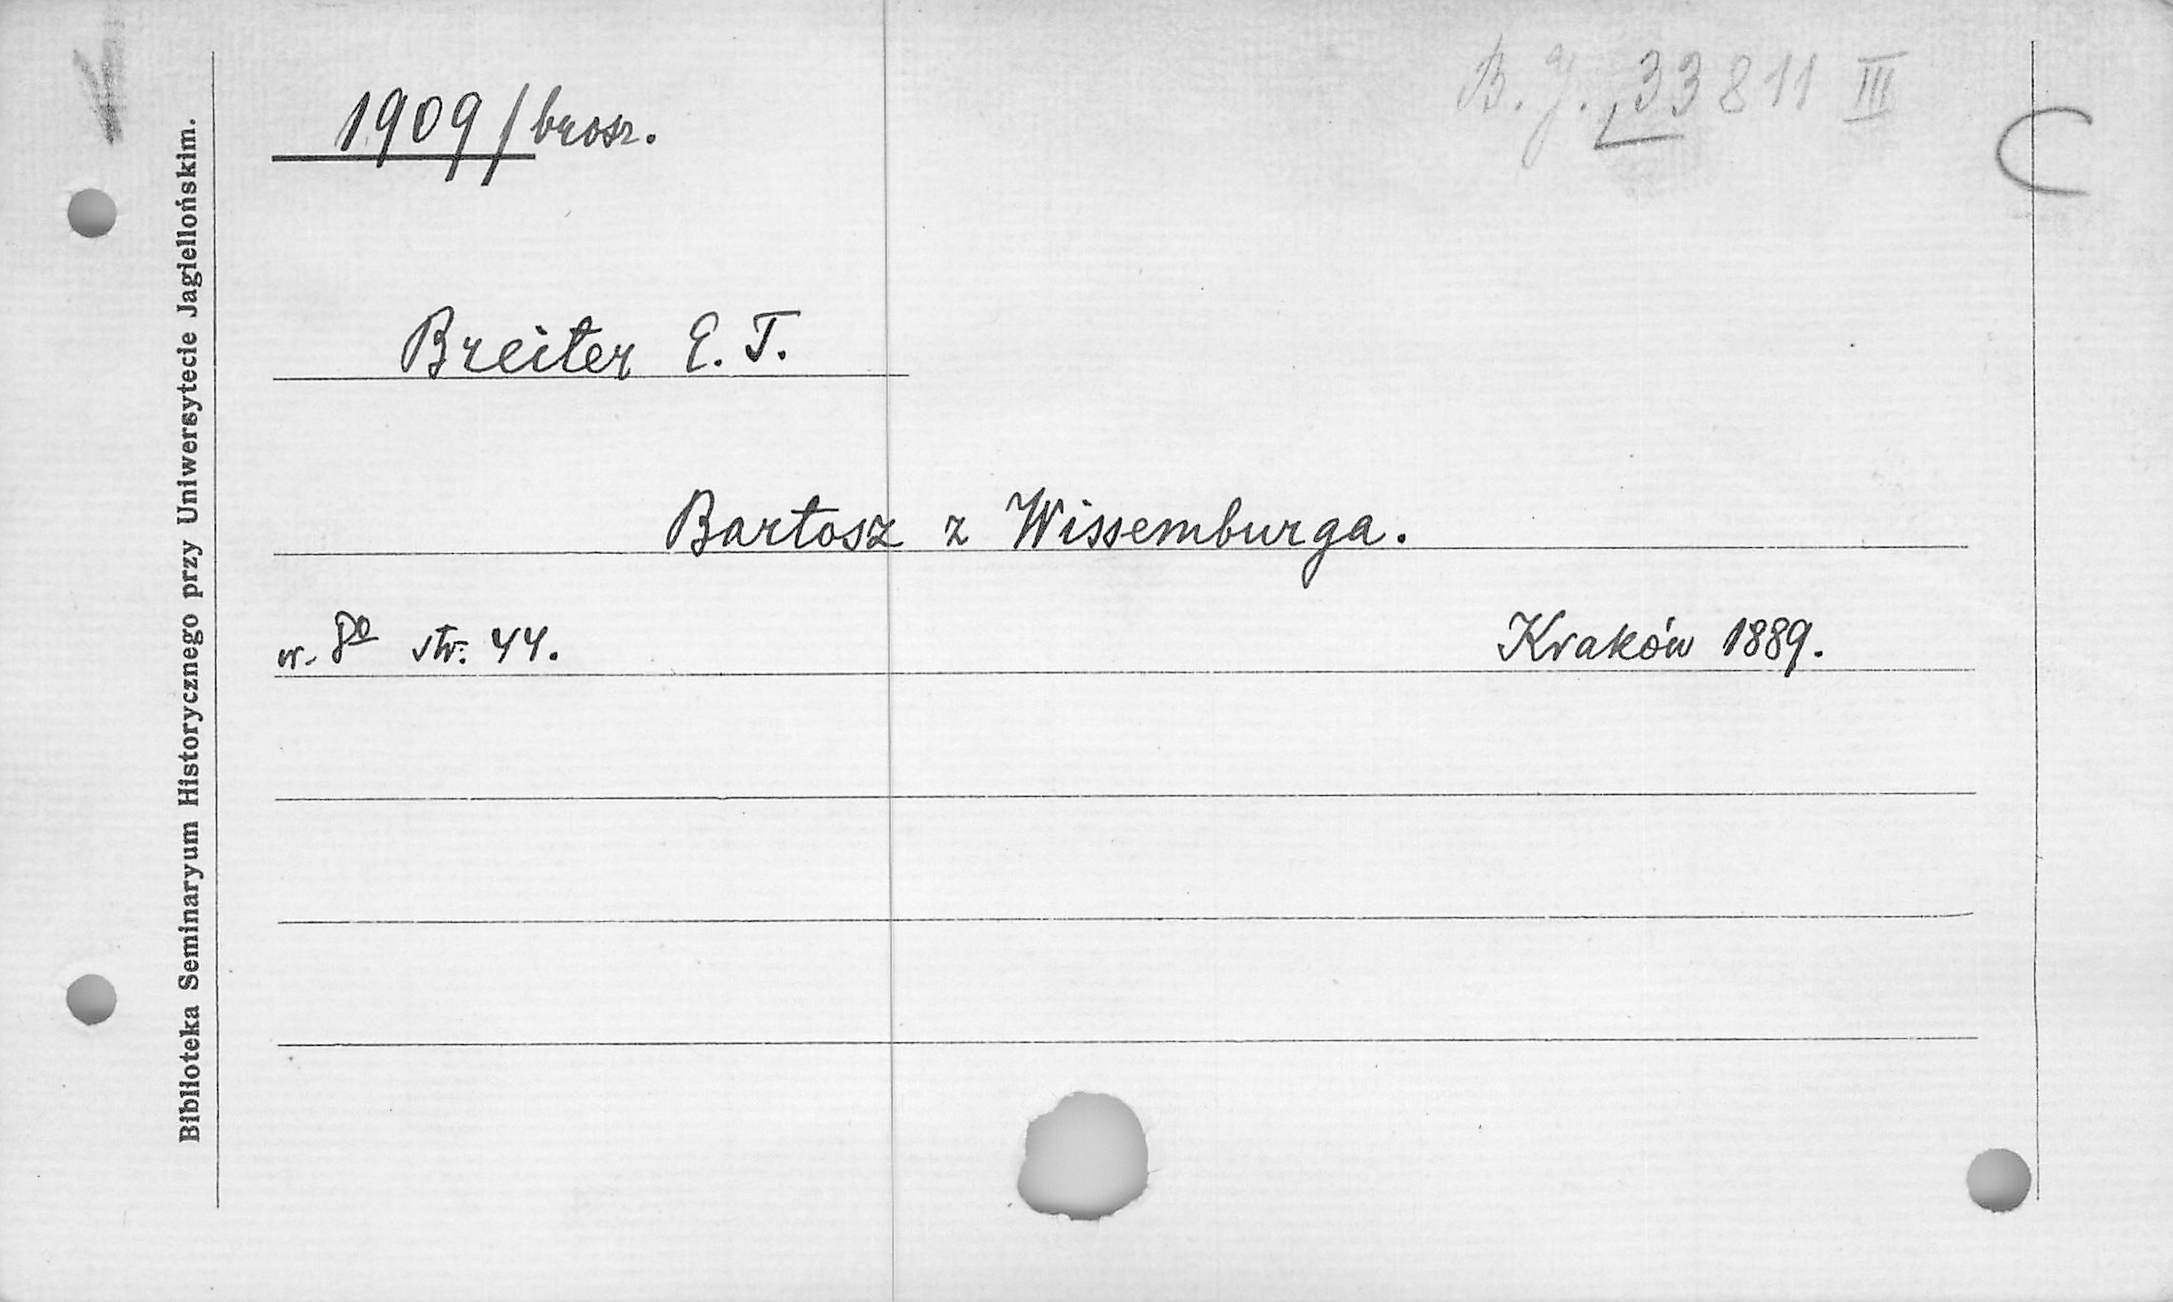 1909/brosz.
B. J. 33811 III
C
Breiter E. T.
Bartosz z Wissemburga.
w. 8º str. 44.
Kraków 1889.
Biblioteka Seminaryum Historycznego przy Uniwersytecie Jagiellońskim.